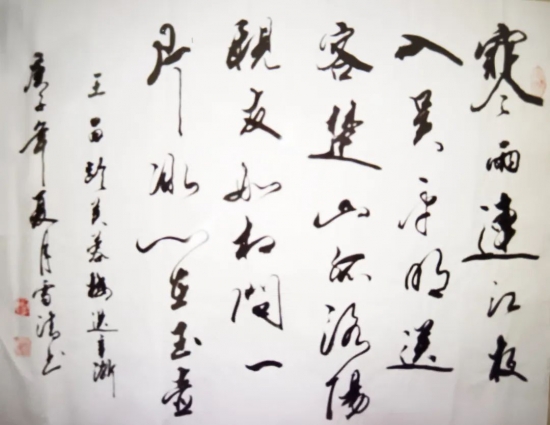 寒雨連江夜
入吳平明送
客楚山孤洛陽
親友如相問一
片冰心在玉壺
王昌齡芙蓉樓送辛漸
庚子年夏月雪书